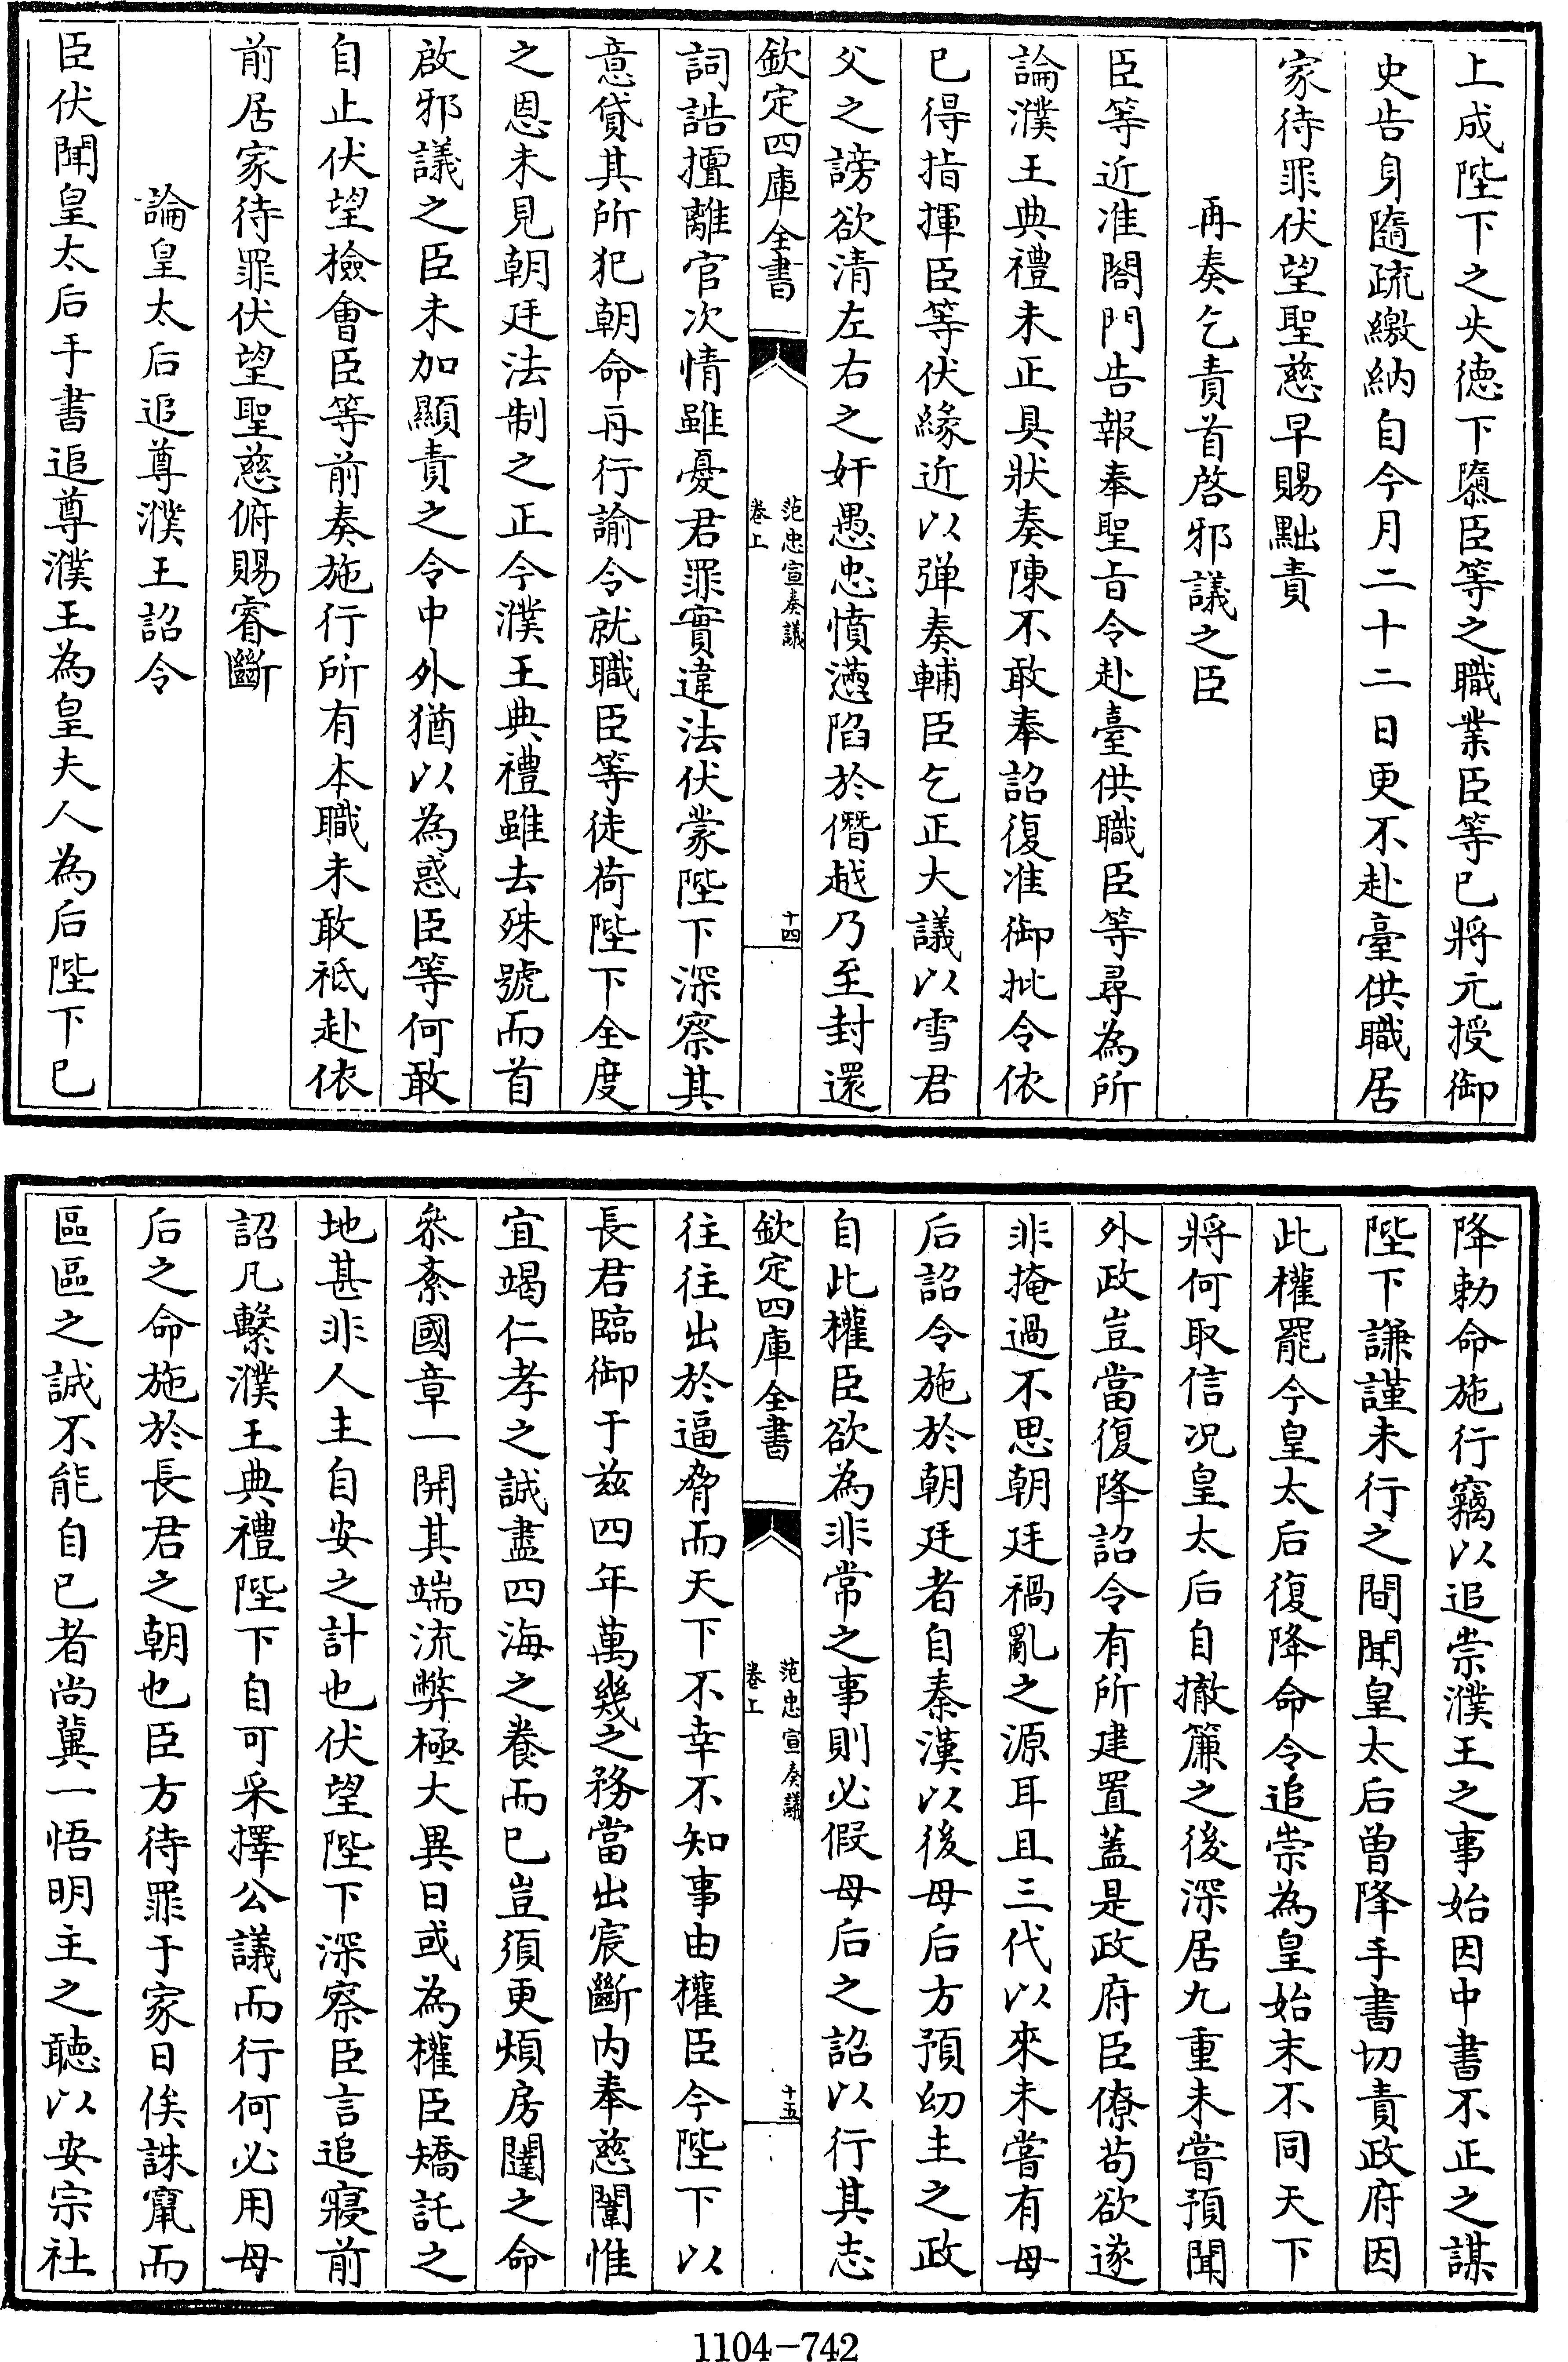 上成陛下之失徳下隳臣等之職業臣等已將元授御
史告身隨疏繳納自今月二十二日更不赴臺供職居
家待罪伏望聖慈早賜黜責
再奏乞責首啓邪議之臣
臣等近准閤門告報奉聖旨令赴臺供職臣等尋為所
論濮王典禮未正具狀奏陳不敢奉詔復准御批令依
已得指揮臣等伏緣近以弹奏輔臣乞正大議以雪君
父之謗欲清左右之奸愚忠憤懣陷於僭越乃至封還
欽定四庫全書
范忠宣奏議
卷上
十四
詞誥擅離官次情雖憂君罪實違法伏蒙陛下深察其
意貸其所犯朝命再行諭令就職臣等徒荷陛下全度
之恩未見朝廷法制之正今濮王典禮雖去殊號而首
啟邪議之臣未加顯責之令中外猶以為惑臣等何敢
自止伏望檢會臣等前奏施行所有本職未敢祗赴依
前居家待罪伏望聖慈俯賜睿斷
論皇太后追尊濮王詔令
臣伏聞皇太后手書追尊濮王為皇夫人為后陛下已
降勅命施行竊以追崇濮王之事始因中書不正之謀
陛下謙謹未行之間聞皇太后曽降手書切責政府因
此權罷今皇太后復降命令追崇為皇始末不同天下
將何取信况皇太后自撤簾之後深居九重未嘗預聞
外政豈當復降詔令有所建置蓋是政府臣僚苟欲遂
非掩過不思朝廷禍亂之源耳且三代以來未嘗有母
后詔令施於朝廷者自秦漢以後母后方預幼主之政
自此權臣欲為非常之事則必假母后之詔以行其志
欽定四庫全書
范忠宣奏議
卷上
十五
往往出於逼脅而天下不幸不知事由權臣今陛下以
長君臨御于兹四年萬幾之務當出宸斷内奉慈闈惟
宜竭仁孝之誠盡四海之養而已豈須更煩房闥之命
叅紊國章一開其端流弊極大異日或為權臣矯託之
地甚非人主自安之計也伏望陛下深察臣言追寢前
詔凡繫濮王典禮陛下自可采擇公議而行何必用母
后之命施於長君之朝也臣方待罪于家日俟誅竄而
區區之誠不能自已者尚冀一悟明主之聽以安宗社
1104-742